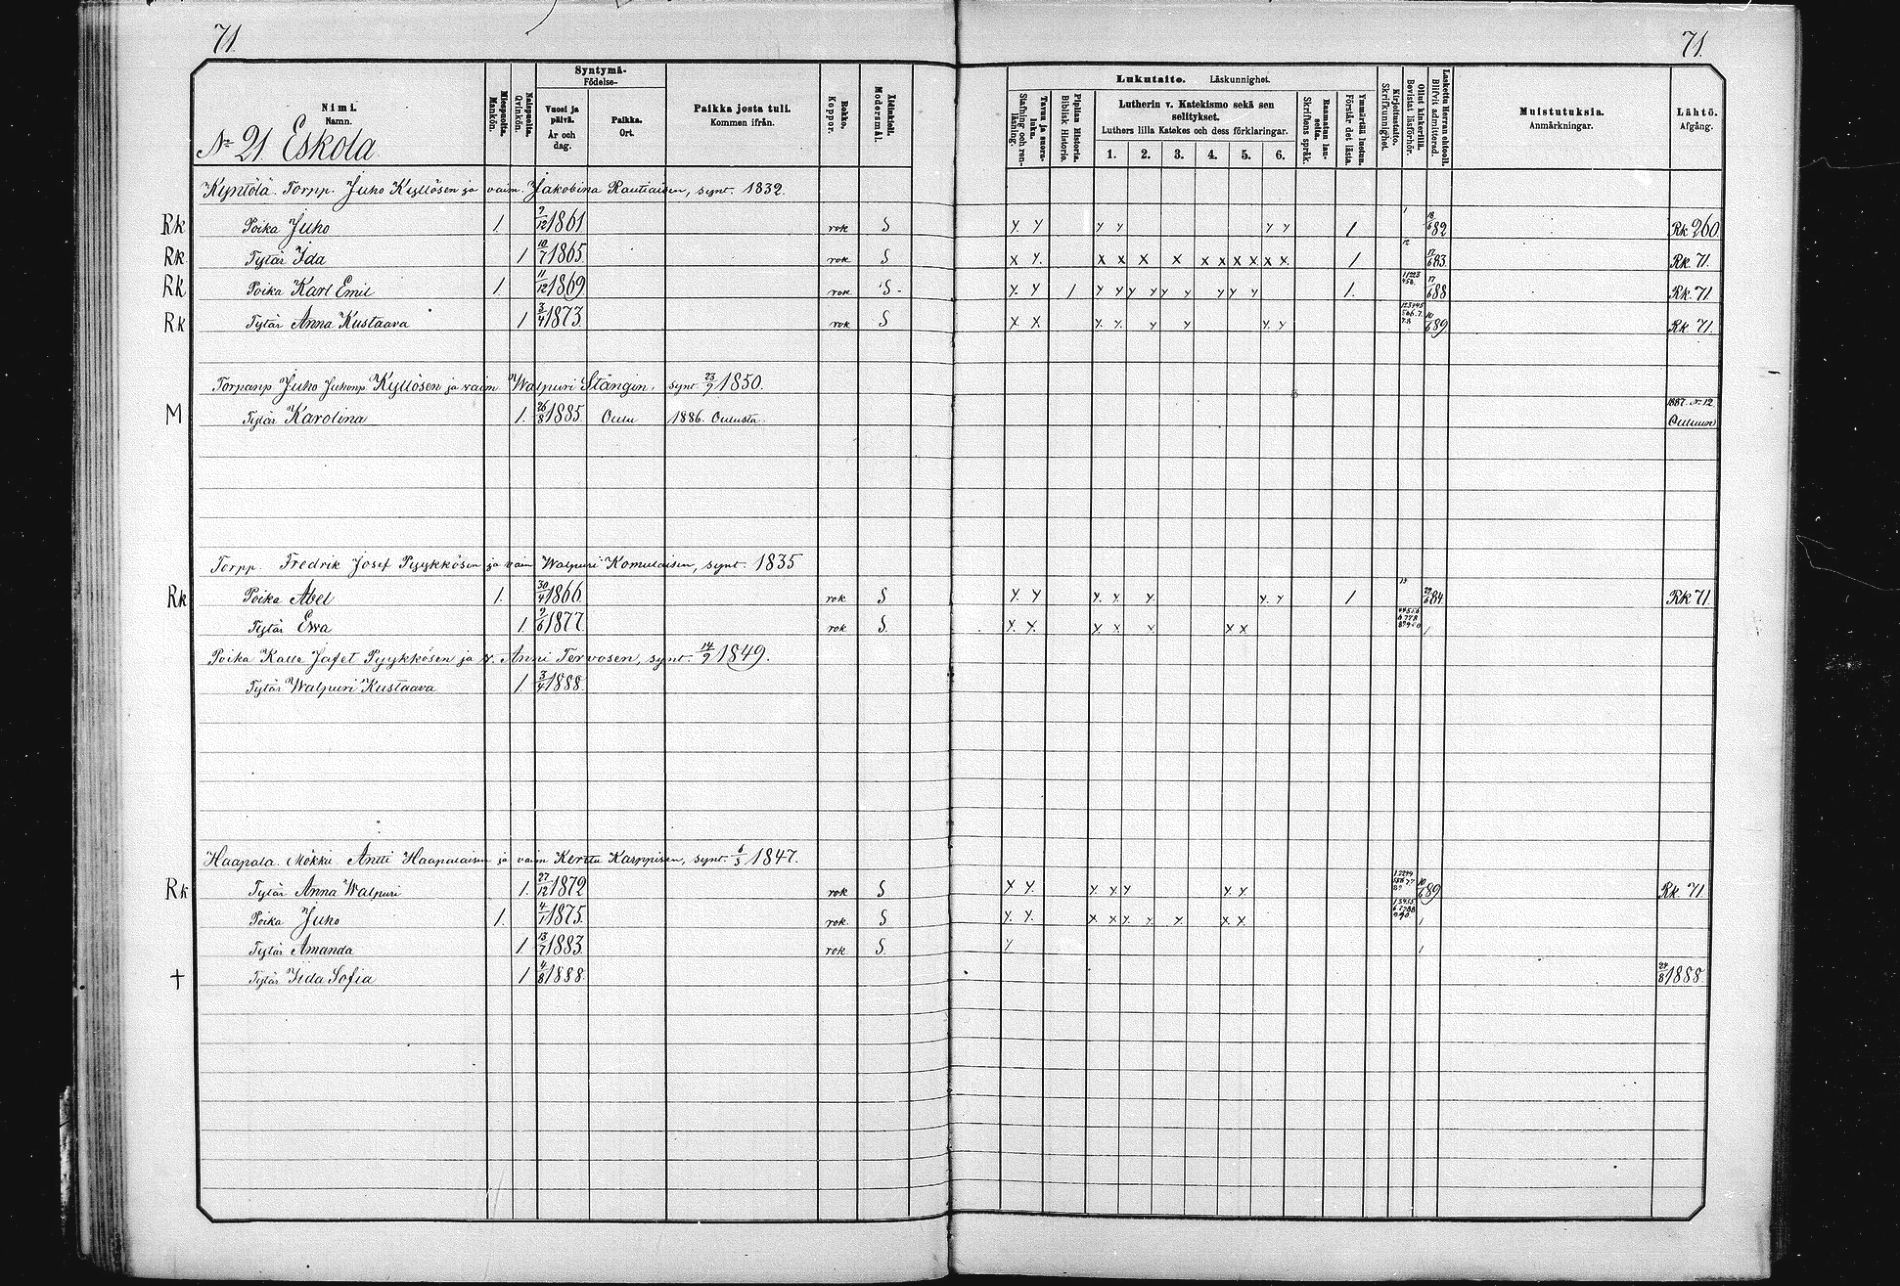 71.
71.
Nimi.
Namn.
Miespuolia.
Mankön.
Naispuolia.
Qvinkön.
Syntymä-
Födelse-
Vuosi ja päivä.
År och dag.
Paikka.
Ort.
Paikka josta tuli.
Kommen ifrån.
Rokko.
Koppor.
Äidinkieli.
Modersmål.
Lukutaito. Läskunnighet.
Tavuu ja suora- luku.
Stafning och ren- läsning.
Piplian Historia.
Biblisk Historia.
Lutherin v. Katekismo sekä sen
selitykset.
Luthers lilla Katekes och dess förklaringar.
1. 2. 3. 4. 5. 6.
Raamatun lau- seita.
Skriftens språk.
Ymmärtää luetun.
Förstår det lästa.
Kirjoitustaito.
Skrifkunnighet.
Ollut kinkerillä.
Bevistat läsförhör.
Laskettu Herran ehtool.
Blifvit admitterad.
Muistutuksia.
Anmärkningar.
Lähtö.
Afgång.
No 21. Eskola
Torpp. Juho Kyllösen ja vaim. Jakobina Rautiaisen, synt. 1832.
Rk Poika Juho 1. 9/12 1861 rok S y y y y y y 1 18/6 82 Rk 260
Rk Tytär Ida 1 10/7 1865 rok S x y. x x x x x x x x x x 1 17/6 83. Rk 71.
Rk Poika Karl Emil 1. 11/12 1869 rok S y y 1 y y y y y y y y y 1. 17/6 88 Rk. 71
Rk Tytär Anna Kustaava 1 3/4 1873. rok S x x y. y. y y y y 10/6 89. Rk 71.
Torpanp. Juho Juhonp. Kyllösen ja vaim. Walpuri Stångin. synt. 23/9 1850.
M Tytär Karolina 1. 26/8 1885 Oulu 1886. Oulusta. 1887. N. 12 Ouluun
Torpp. Fredrik Josef Pyykkösen ja vaim Walpuri Komulaisen, synt. 1835
Rk Poika Abel 1. 30/4 1866 rok S y. y y. x y y. y 1 84 Rk 71.
Tytär Ewa 1. 9/6 1877. rok S. y. y. x x x x x
Poika Kalle Jafet Pyykkösen ja v. Anni Tervosen, synt. 14/9 1849.
Tytär Walpuri Kustaava 1 3/4 1888.
Haapala. Mökki. Antti Haapalaisen ja vaim Kerttu Karppisen, synt. 6/3 1847.
Rk Tytär Anna Walpuri 1. 27/12 1872 rok S x y. y. x y x x 10/6 89 Rk. 71.
Poika Juho 1. 4/1 1875. rok. S y. y. x x y. y y. x x
Tytär Amanda 1 13/7 1883. rok S. y
† Tytär Iida Sofia 1 4/8 1888. 24/8 1888.